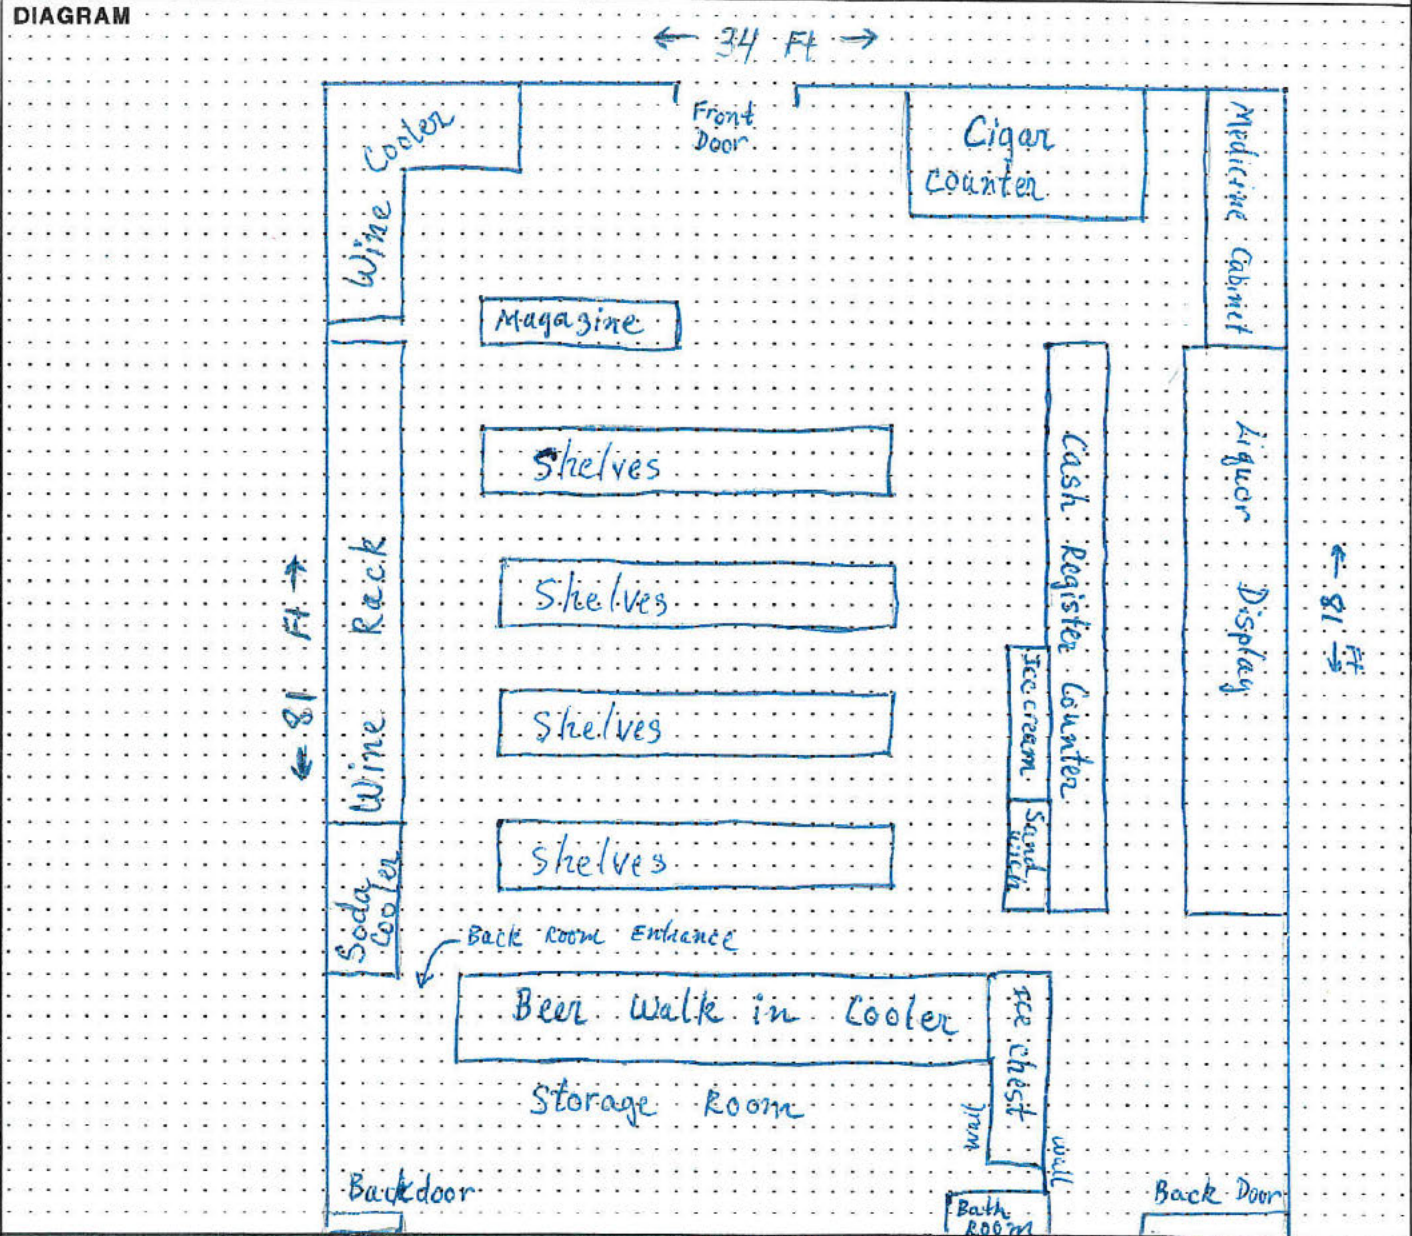 DIAGRAM
← 34 Ft →
Front
Door
Wine Cooler
Cigar
Counter
Medicine Cabinet
Magazine
Shelves
Shelves
Shelves
Shelves
Cash Register Counter
Liquor Display
← 81 Ft →
← 81 Ft →
Wine Rack
Ice cream
Sand
wich
Soda
Cooler
Back Room Entrance
Beer Walk in Cooler
Ice Chest
Storage Room
wall
Back door
Bath
Room
Back Door